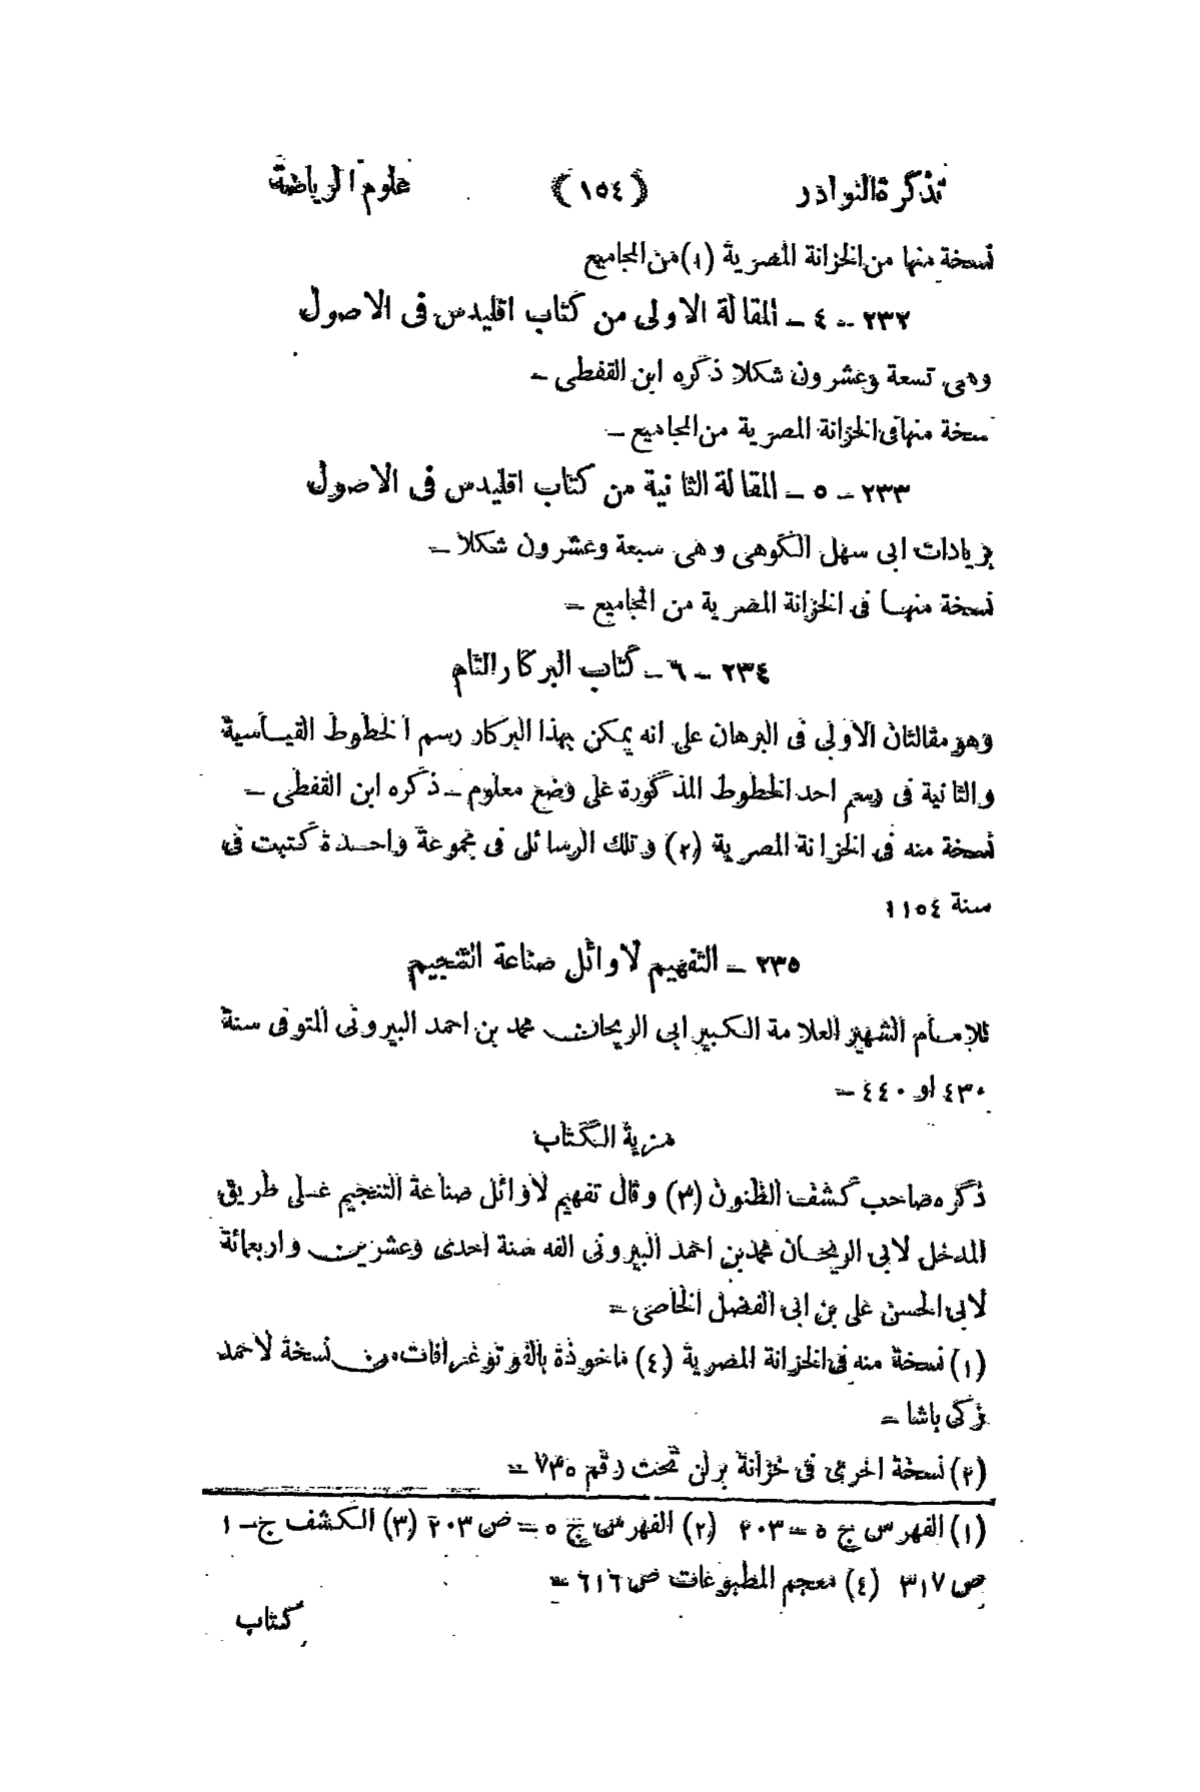 تذكرة النوادر (١٥٤) علوم الرياضة
نسخة منها من الخزانة المصرية (١) من المجاميع
٢٣٢ - ٤ - المقالة الاولى من كتاب اقليدس فى الاصول
وهى تسعة وعشرون شكلا ذكره ابن القفطى -
نسخة منها فى الخزانة المصرية من المجاميع -
٢٣٣ - ٥ - المقالة الثانية من كتاب اقليدس فى الاصول
بزيادات ابى سهل الكوهى وهى سبعة وعشرون شكلا -
نسخة منها فى الخزانة المصرية من المجاميع -
٢٣٤ - ٦ - كتاب البركار التام
وهو مقالتان الاولى فى البرهان على انه يمكن بهذا البركار رسم الخطوط القياسية
والثانية فى رسم احد الخطوط المذكورة على وضع معلوم - ذكره ابن القفطى -
نسخة منه فى الخزانة المصرية (٢) وتلك الرسائل فى مجموعة واحدة كتبت فى
سنة ١١٥٤
٢٣٥ - التفهيم لاوائل صناعة التنجيم
للامام الشهير العلامة الكبير ابى الريحان محمد بن احمد البيرونى المتوفى سنة
٤٣٠ او ٤٤٠ -
مزية الكتاب
ذكره صاحب كشف الظنون (٣) وقال تفهيم لاوائل صناعة التنجيم على طريق
المدخل لابى الريحان محمد بن احمد البيرونى الفه سنة احدى وعشرين واربعمائة
لابى الحسن على بن ابى الفضل الخاصى -
(١) نسخة منه فى الخزانة المصرية (٤) ماخوذة بالفوتوغرافات من نسخة لاحمد
زكى باشا -
(٢) نسخة اخرى فى خزانة برلن تحت رقم ٧٣٥ -
(١) الفهرس ج ٥ - ٢٠٣ (٢) الفهرس ج ٥ - ص ٢٠٣ (٣) الكشف ج - ١
ص ٣١٧ (٤) معجم المطبوعات ص ٦١٦ -
كتاب